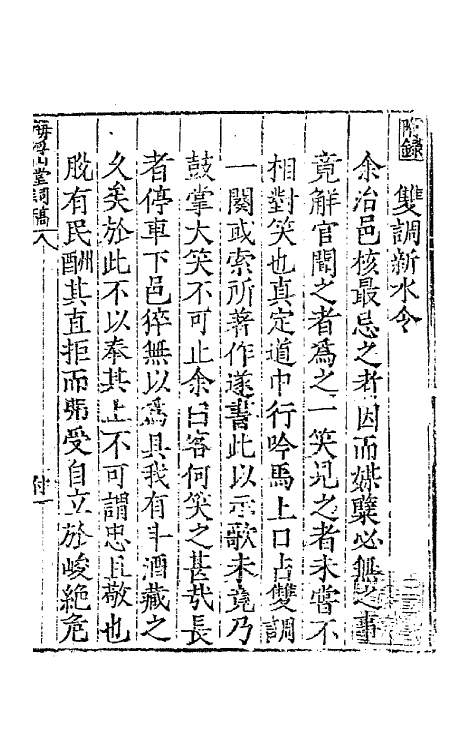 附錄
雙調新水令
余治邑核最忌之者因而媒糵必無之事
竟解官聞之者為之一笑見之者未嘗不
相對笑也真定道中行吟馬上口占雙調
一闋或索所著作遂書此以示歌未竟乃
鼓掌大笑不可止余曰客何笑之甚哉長
者停車下邑猝無以為具我有斗酒藏之
久矣於此不以奉其上不可謂忠且敬也
脫有民酬其直拒而弗受自立於峻絕危
海浮山堂詞稿 八
付一